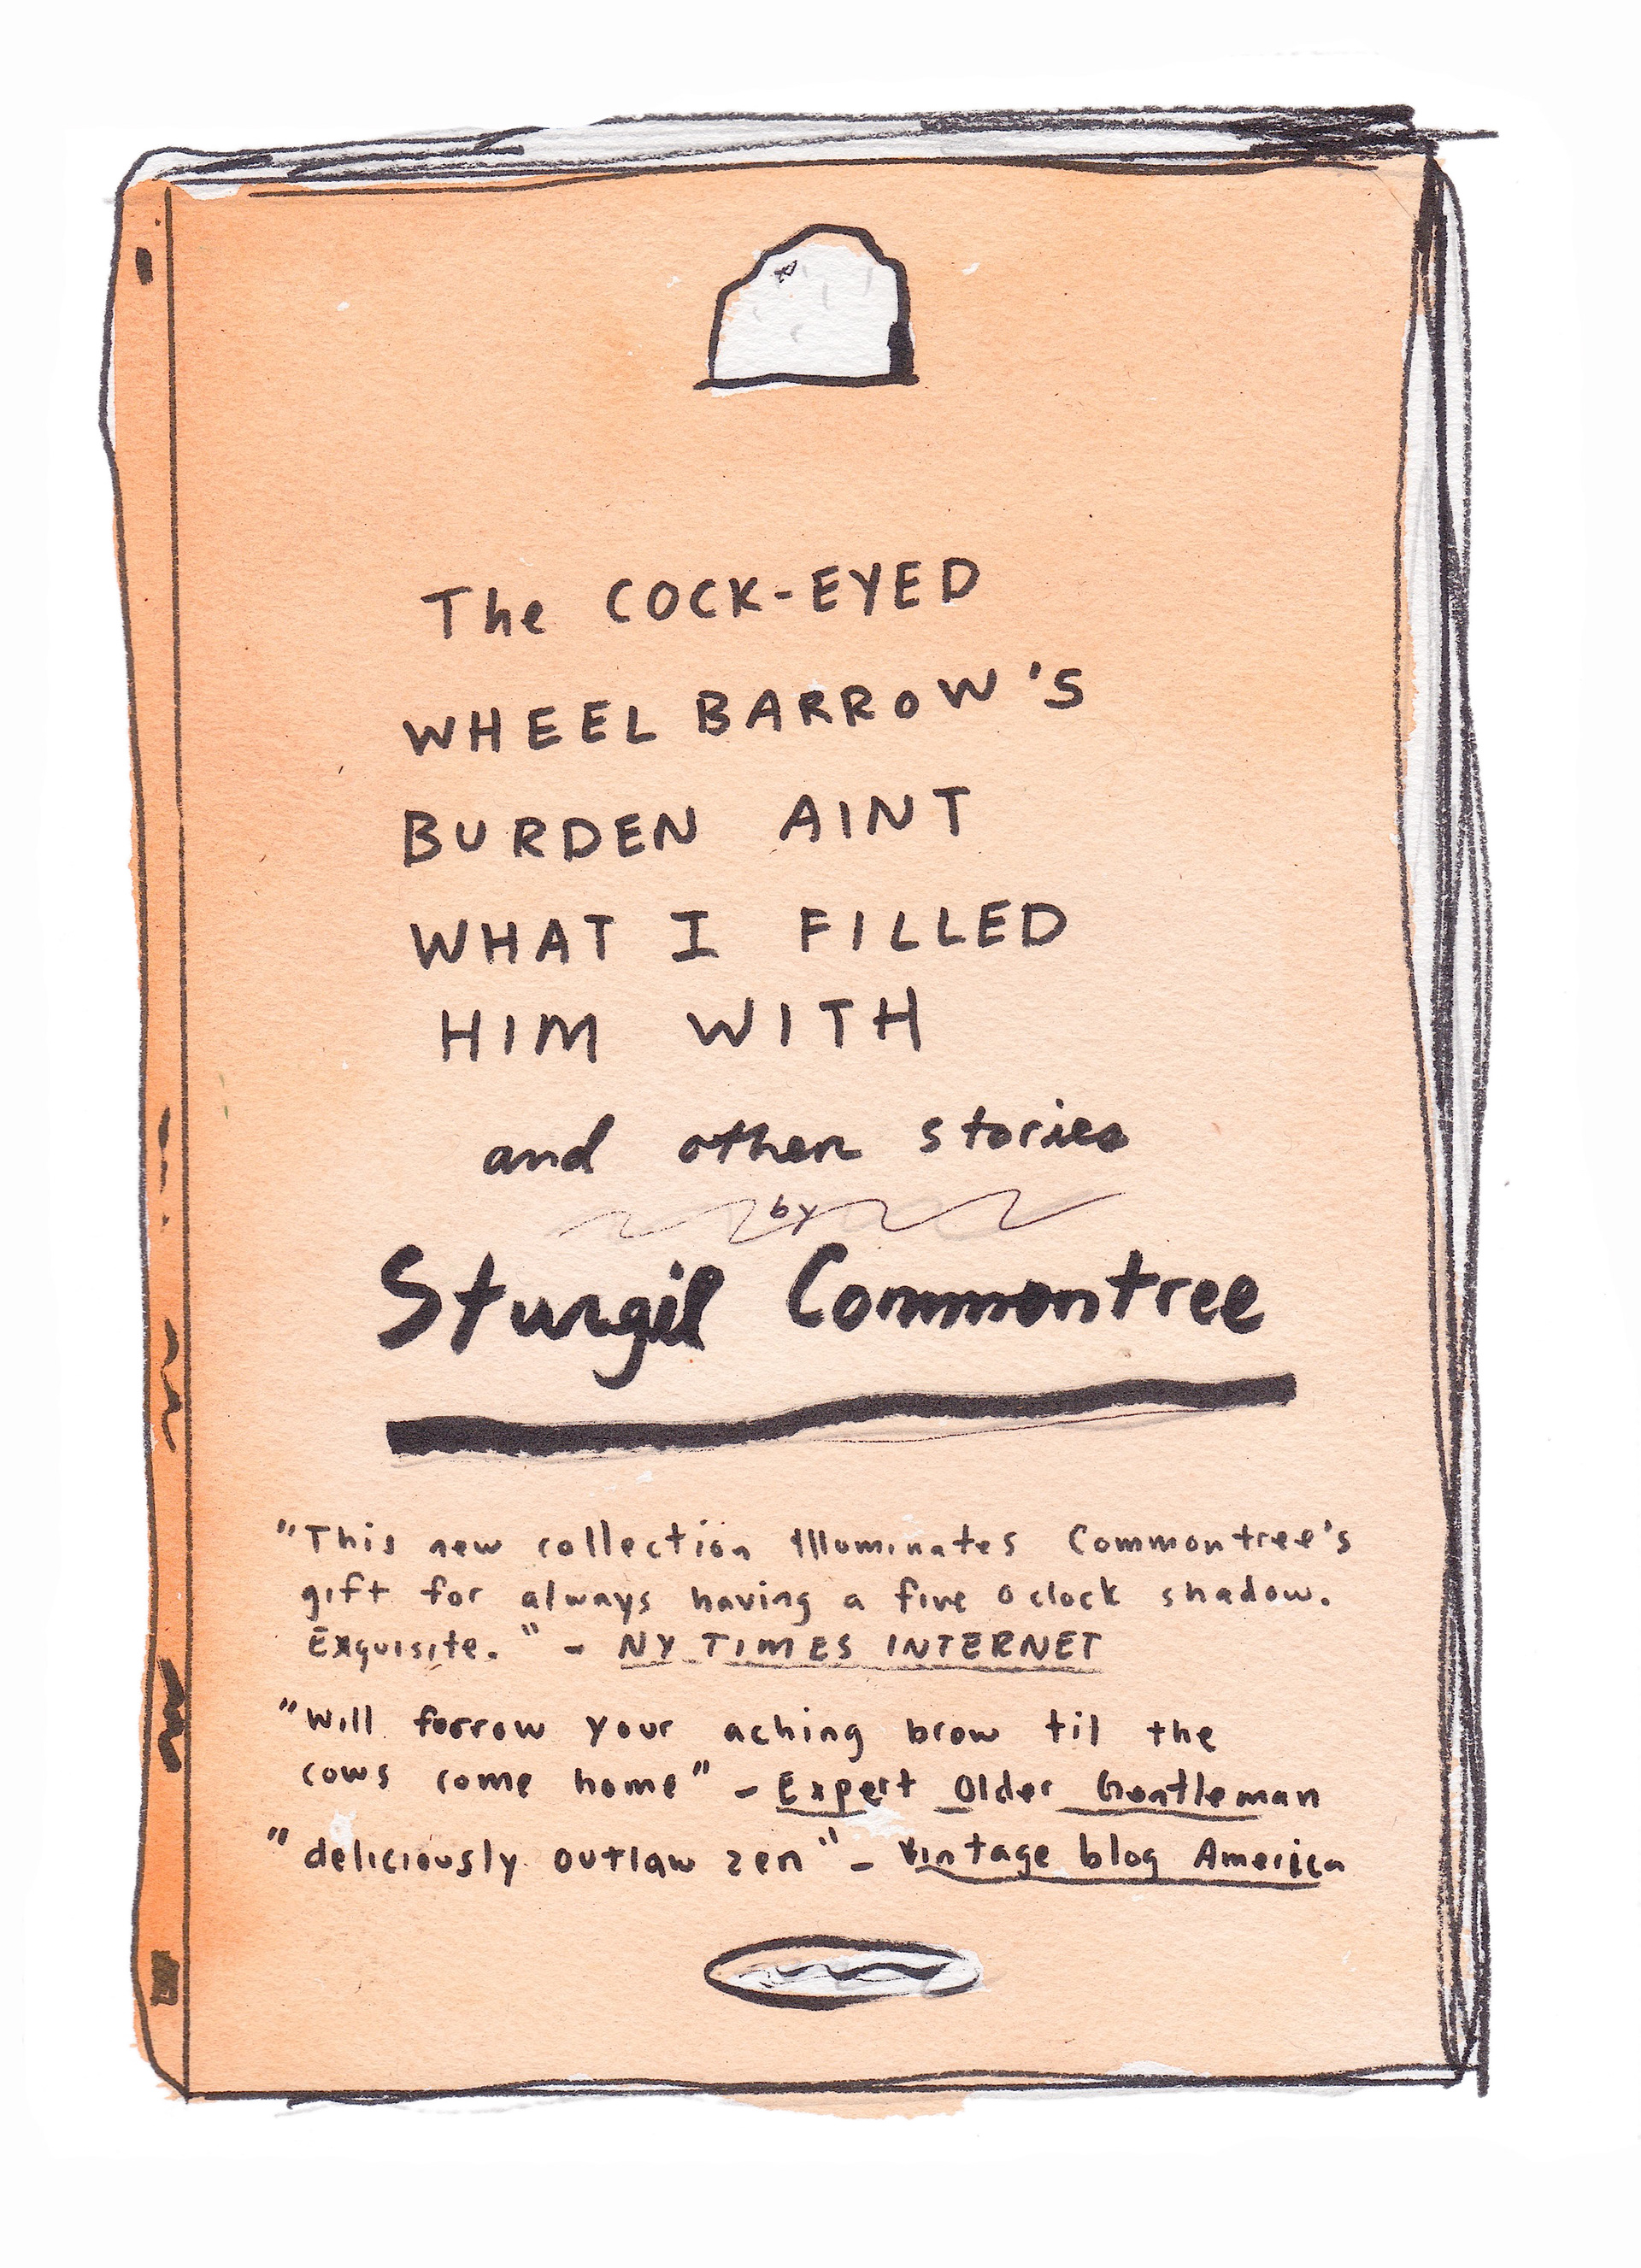 The COCK-EYED
WHEEL BARROW'S
BURDEN AINT
WHAT I FILLED
HIM WITH
and other stories
by
Sturgil Commontree
"This new collection Illuminates Commontree's
gift for always having a five oclock shadow.
Exquisite." - NY TIMES INTERNET
"Will forrow your aching brow til the
cows come home" - Expert Older Gentleman
"deliciously outlaw zen" - Vintage blog America